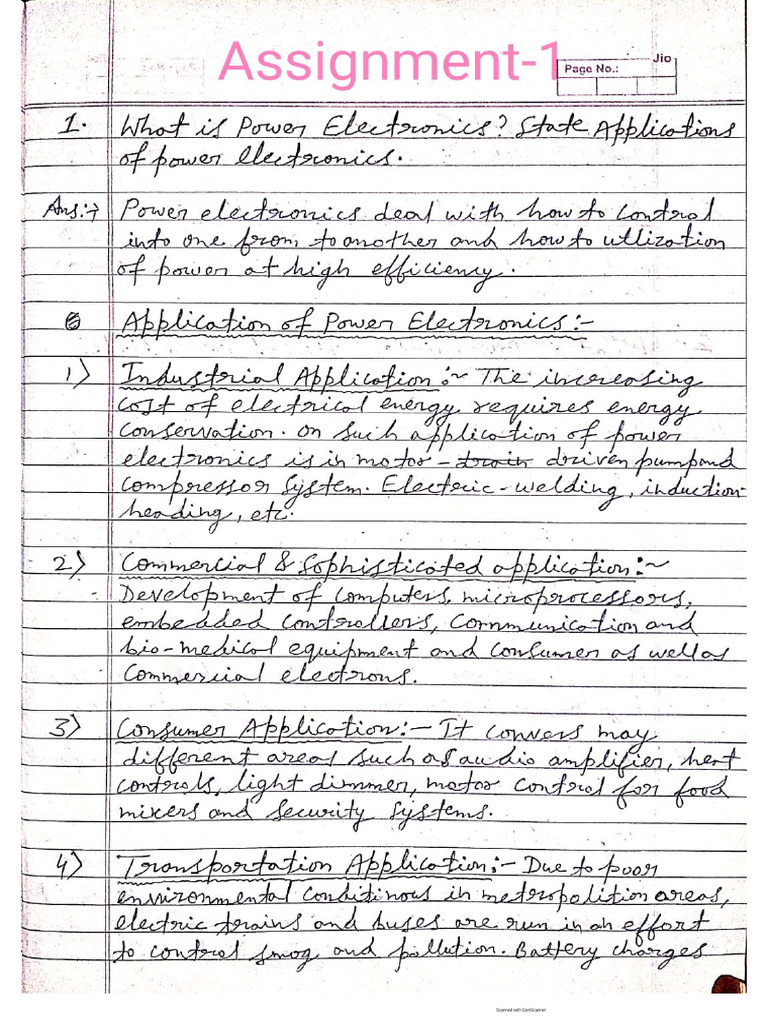 Assignment-1
Jio
Page No.:
1. What is Power Electronics? State Applications
of power electronics.
Ans:→ Power electronics deal with how to control
into one from, to another and how to utlization
of power at high efficiency.
Application of Power Electronics:-
1) Industrial Application:~ The increasing
cost of electrical energy requires energy
conservation. on such application of power
electronics is in motor - train driven pump and
compressor system. Electric-welding, induction-
heading, etc.
2) Commercial & Sophisticated application:~
Development of computers, microprocessors,
embedded controllers, communication and
bio-medical equipment and consumer as well as
Commercial electrons.
3) Consumer Application:- It convers may
different areas such as audio amplifier, heat
controls, light dimmer, motor control for food
mixers and security systems.
4) Transportation Application:- Due to poor
environmental conditinous in metropolition areas,
electric trains and buses are run in an effort
to control smog and pollution. Battery charges
Scanned with CamScanner